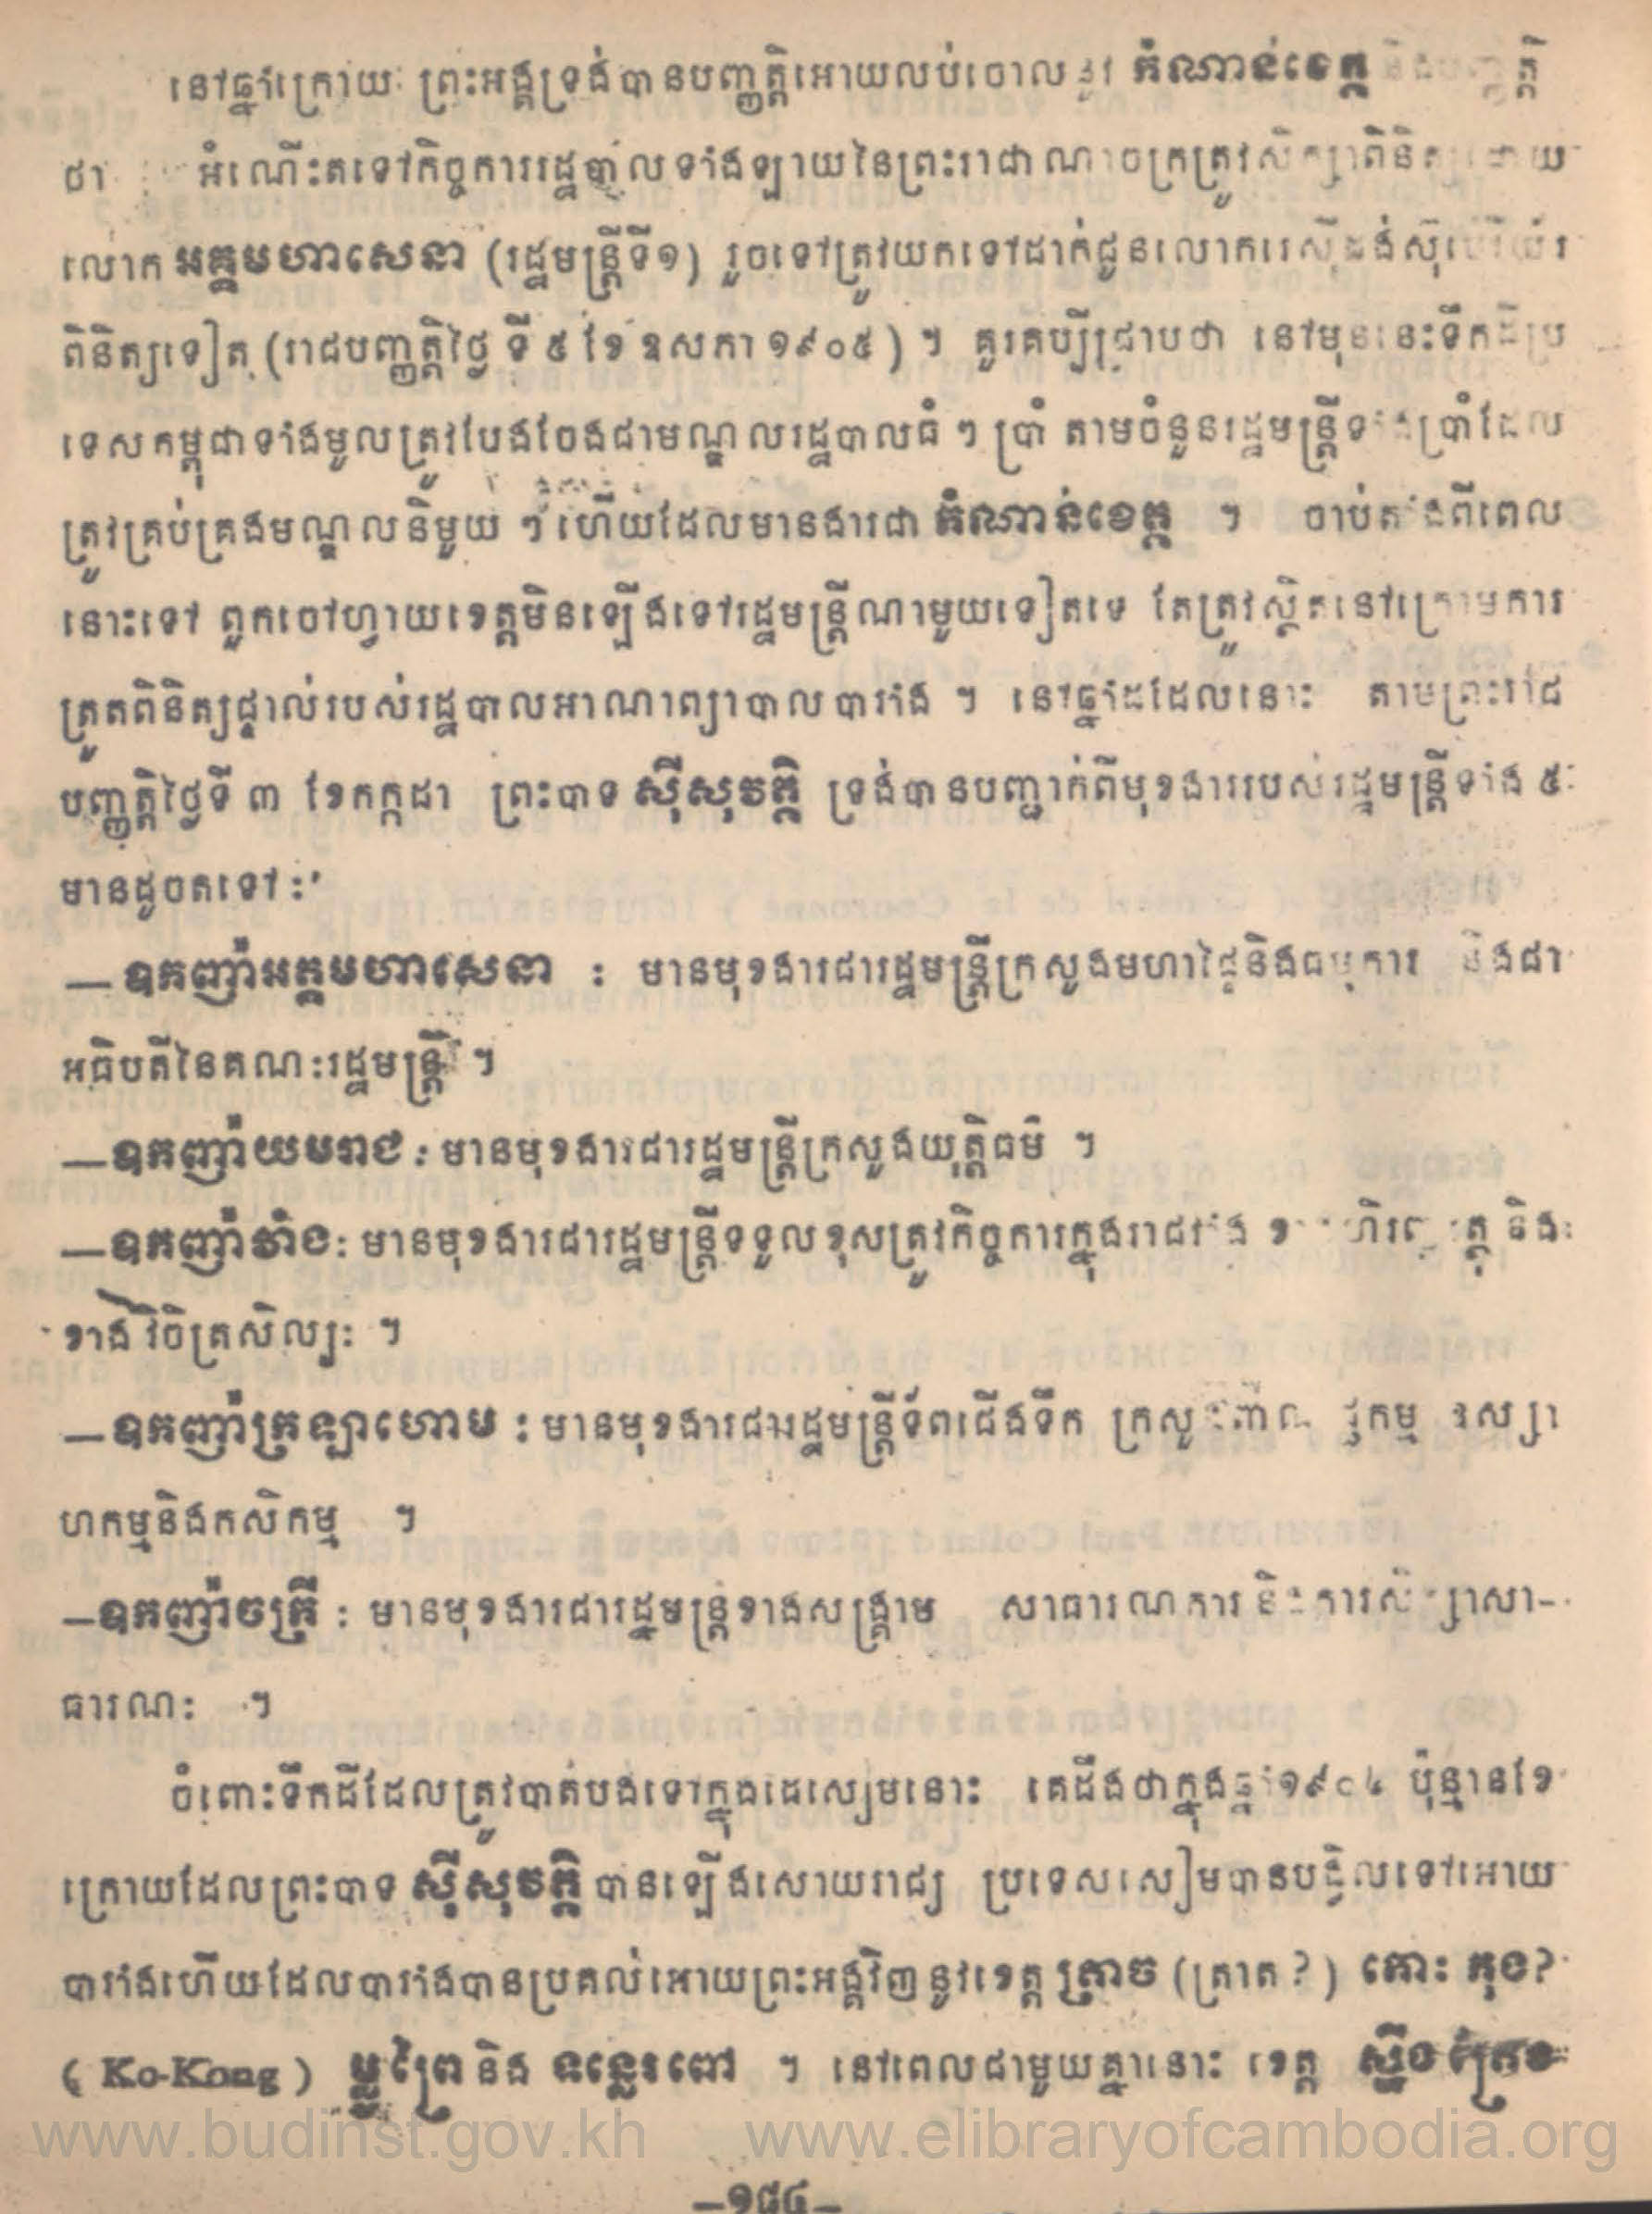 នៅឆ្នាំក្រោយ ព្រះអង្គទ្រង់បានបញ្ញត្តិអោយលប់ចោលនូវ តំណាន់ខេត្ត និងបញ្ញត្តិ
ថា អំណើះតទៅកិច្ចការរដ្ឋបាលទាំងឡាយនៃព្រះរាជាណាចក្រត្រូវសិក្សាពិនិត្យដោយ
លោក អគ្គមហាសេនា (រដ្ឋមន្ត្រីទី១) រួចទៅត្រូវយកទៅដាក់ជូនលោករេស៊ីដង់ស៊ុបេរីយ័រ
ពិនិត្យទៀត (រាជបញ្ញត្តិថ្ងៃ ទី ៥ ខែ ឧសភា ១៩០៥) ។ គួរគប្បីជ្រាបថា នៅមុននេះទឹកដីប្រ
ទេសកម្ពុជាទាំងមូលត្រូវបែងចែងជាមណ្ឌលរដ្ឋបាលធំៗ ប្រាំ តាមចំនួនរដ្ឋមន្ត្រីទាំងប្រាំដែល
ត្រូវគ្រប់គ្រងមណ្ឌលនិមួយ ៗ ហើយដែលមានងារជា តំណាន់ខេត្ត ។ ចាប់តាំងពីពេល
នោះទៅ ពួកចៅហ្វាយខេត្តមិនឡើងទៅរដ្ឋមន្ត្រីណាមួយទៀតទេ តែត្រូវស្ថិតនៅក្រោមការ
ត្រួតពិនិត្យផ្ទាល់របស់រដ្ឋបាលអាណាព្យាបាលបារាំង ។ នៅឆ្នាំដដែលនោះ តាមព្រះរាជ
បញ្ញត្តិថ្ងៃទី ៣ ខែកក្កដា ព្រះបាទ ស៊ីសុវត្ថិ ទ្រង់បានបញ្ជាក់ពីមុខងាររបស់រដ្ឋមន្ត្រីទាំង ៥
មានដូចតទៅ :
—ឧកញ៉ាអគ្គមហាសេនា : មានមុខងារជារដ្ឋមន្ត្រីក្រសួងមហាផ្ទៃនិងធម្មការ និងជា
អធិបតីនៃគណៈរដ្ឋមន្ត្រី ។
—ឧកញ៉ាយមរាជ : មានមុខងារជារដ្ឋមន្ត្រីក្រសួងយុត្តិធម៌ ។
—ឧកញ៉ាវាំង : មានមុខងារជារដ្ឋមន្ត្រីទទួលខុសត្រូវកិច្ចការក្នុងរាជវាំង និង
ខាងវិចិត្រសិល្បៈ ។
—ឧកញ៉ាក្រឡាហោម : មានមុខងារជារដ្ឋមន្ត្រីទ័ពជើងទឹក ក្រសួងពាណិជ្ជកម្ម ឧស្សា
ហកម្មនិងកសិកម្ម ។
—ឧកញ៉ាចក្រី : មានមុខងារជារដ្ឋមន្ត្រខាងសង្គ្រាម សាធារណការ និងការសិក្សាសា-
ធារណៈ ។
ចំពោះទឹកដីដែលត្រូវបាត់បង់ទៅក្នុងដៃសៀមនោះ គេដឹងថាក្នុងឆ្នាំ១៩០៤ ប៉ុន្មានខែ
ក្រោយដែលព្រះបាទ ស៊ីសុវត្ថិ បានឡើងសោយរាជ្យ ប្រទេសសៀមបានបង្វិលទៅអោយ
បារាំងហើយដែលបារាំងបានប្រគល់អោយព្រះអង្គវិញនូវខេត្ត ត្រាច (ត្រាត ?) កោះ កុង ?
( Ko-Kong ) ម្លូព្រៃ និង ទន្លេរពៅ ។ នៅពេលជាមួយគ្នានោះ ខេត្ត ស្ទឹងត្រែង
www.budinst.gov.kh www.elibraryofcambodia.org
—១៨៤—